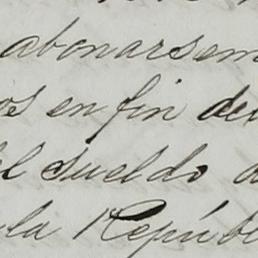 abonarsem
os en fin del
el sueldo d
la Repúbl